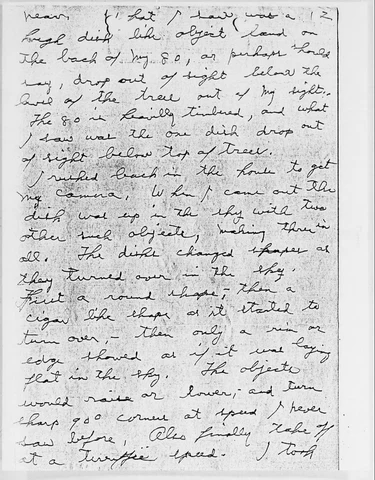 near. What I saw was a 12
hough disk like object land on
the back of my 80, or perhaps should
say, drop out of sight below the
level of the trees out of my sight.
The 80 is heavilly timbered, and what
I saw was the one disk drop out
of sight below top of trees.
I rushed back in the house to get
my camera, When I came out the
disk was up in the sky with two
other such objects, making three in
all. The disks changed shapes as
they turned over in the sky.
First a round shape,- then a
cigar like shape as it started to
turn over,- then only a rim or
edge showed as if it was laying
flat in the sky. The objects
would raise or lower,- and turn
sharp 90° corners at speed I never
saw before, Also finally take off
at a terriffic speed. I took